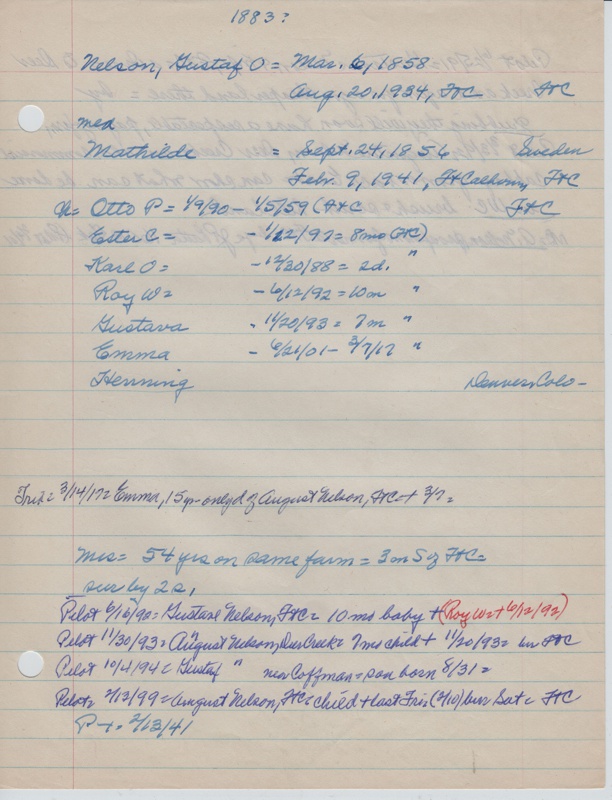 1883?
Nelson, Gustaf O = Mar. 6, 1858
Aug. 20, 1934, FtC FtC
med
Mathilde = Sept. 24, 1856 Sweden
Febr. 9, 1941, FtCalhoun, FtC
Ch = Otto P = 4/9/90 - 4/5/59 (FtC FtC
Ester C = - 1/22/97 = 8 mo (FtC)
Karl O = - 12/30/88 = 2d. "
Roy W = - 6/12/92 = 10m "
Gustava - 11/20/93 = 7m "
Emma - 6/21/01 - 3/7/17 "
Henning Denver, Colo -
Trib = 3/14/17 = Emma, 15 yr - only d of August Nelson, FtC + 3/7 =
Mrs = 54 yrs on same farm = 3m S of FtC =
sur by 2 s,
Pilot 6/16/92 = Gustave Nelson, FtC = 10 mo baby + (Roy W = + 6/12/92)
Pilot 11/30/93 = August Nelson, = 7mo child + 11/20/93 = bur FtC
Pilot 10/4/94 = Gustaf " near Coffman = son born 8/31 =
Pilot = 2/13/99 = August Nelson, FtC = child + last Fri (2/10) bur Sat = FtC
P - + = 2/13/41